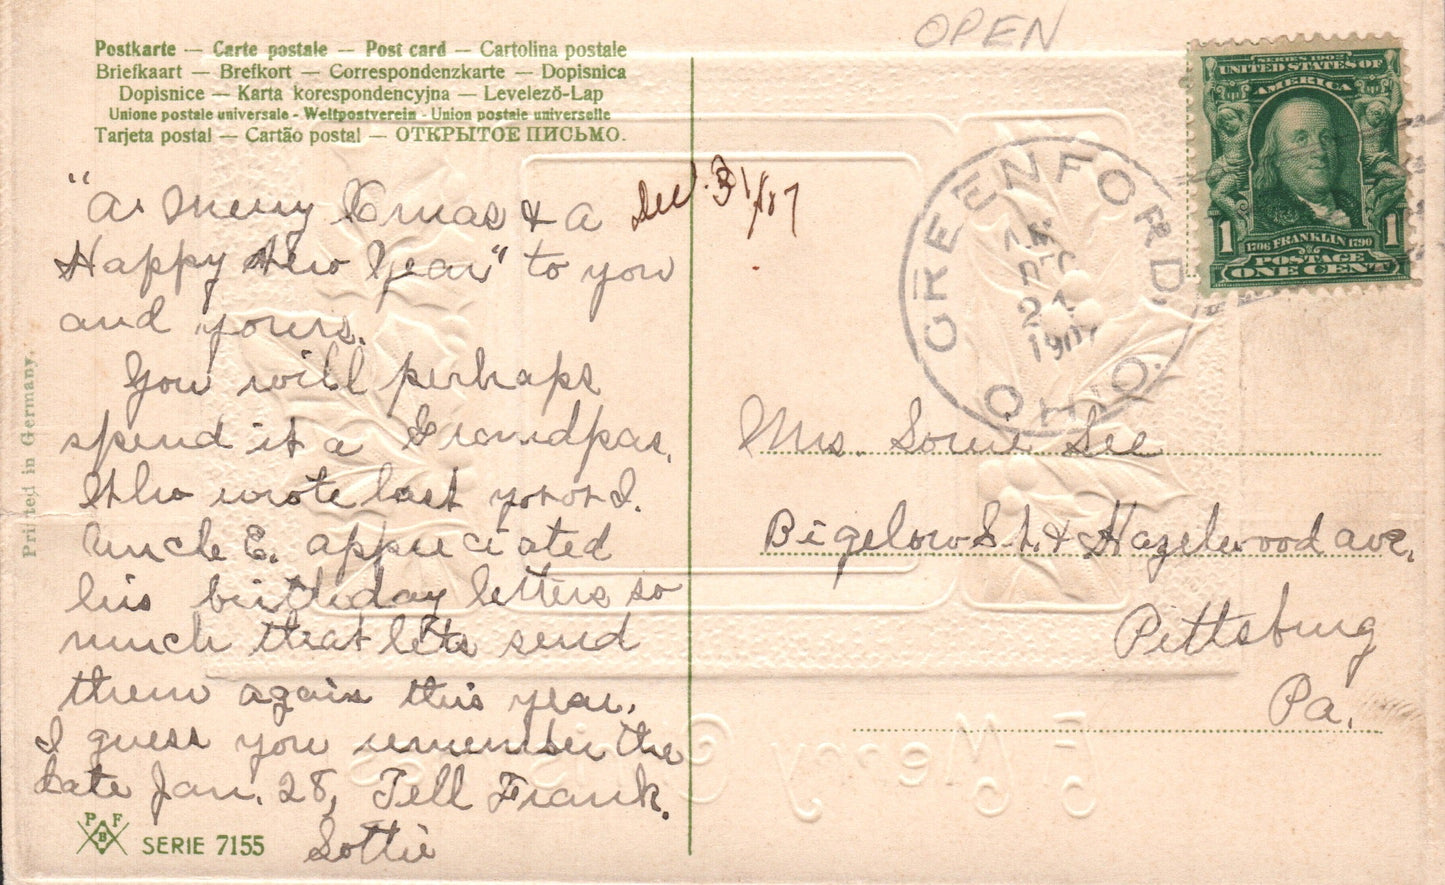 OPEN
Postkarte — Carte postale — Post card — Cartolina postale
Briefkaart — Brefkort — Correspondenzkarte — Dopisnica
Dopisnice — Karta korespondencyjna — Levelező-Lap
Unione postale universale - Weltpostverein - Union postale universelle
Tarjeta postal — Cartão postal — ОТКРЫТОЕ ПИСЬМО.
SERIES 1902
UNITED STATES OF
AMERICA
1706 FRANKLIN 1790
1 1
POSTAGE
ONE CENT
GREENFORD. OHIO
DEC
21
1907
Dec. 31/07
"A Merry Xmas & a
Happy New Year" to you
and yours.
You will perhaps
spend it a Grandpas.
wrote last
Uncle E. appreciated
his birthday letters so
much that lets send
them again this year.
I guess you remember the
date Jan. 28, Tell Frank.
Lottie
Mrs. Lee
Bigelow St. & Hazelwood ave.
Pittsburg
Pa.
Printed in Germany.
P F
B
SERIE 7155
A Merry Christmas